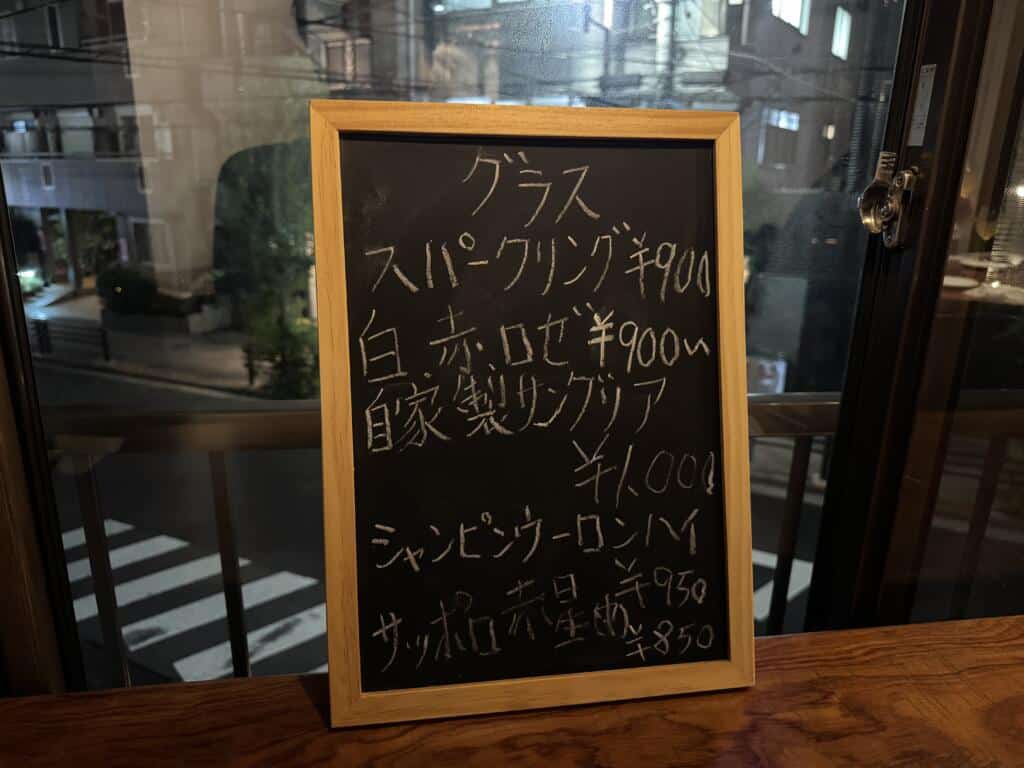 グラス
スパークリング ¥900
白 赤 ロゼ ¥900〜
自家製サングリア
¥1,000
シャンピンウーロンハイ
¥950
サッポロ赤星
¥850